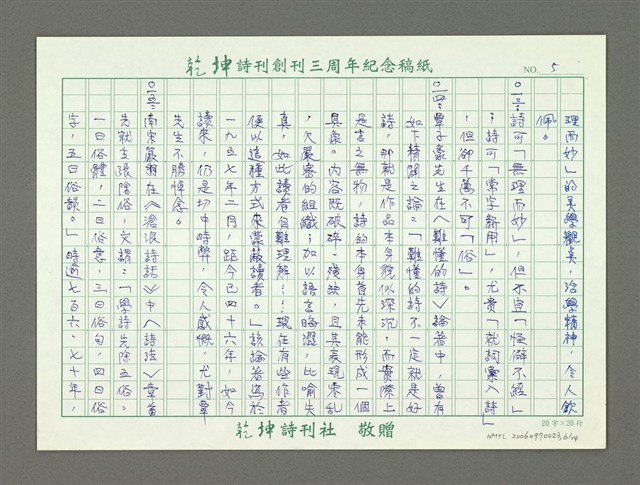 乾坤詩刊創刊三周年紀念稿紙
NO. 5
理而妙」的美學觀點,治學精神,令人欽
佩。
詩可「無理而妙」,但不宜「怪僻不經」
;詩可「常字新用」,尤貴「就詞彙入詩」
,但卻千萬不可「俗」。
覃子豪先生在〈難懂的詩〉論著中,曾有
如下精闢之論:「難懂的詩不一定就是好
詩,那就是作品本身貌似深沉,而實際上
是言之無物,詩的本身首先未能形成一個
具象。內容既破碎、殘缺,且其表現零乱
,欠嚴密的組織;加以語言晦澀,比喻失
真,如此讀者自難理解……現在有些作者
便以這種方式來蒙蔽讀者。」該論著寫於
一九五七年二月,距今已四十六年,如今
讀來,仍是切中時弊,令人感慨,尤對覃
先生不勝悼念。
南宋嚴羽在《滄浪詩話》中〈詩法〉章首
先就主張除俗,文謂:「學詩先除五俗:
一曰俗體,二曰俗意,三曰俗句,四曰俗
字,五曰俗韻。」時逾七百六、七十年,
乾坤詩刊社 敬贈
20字×20行
NMTL 20060970023,6/14